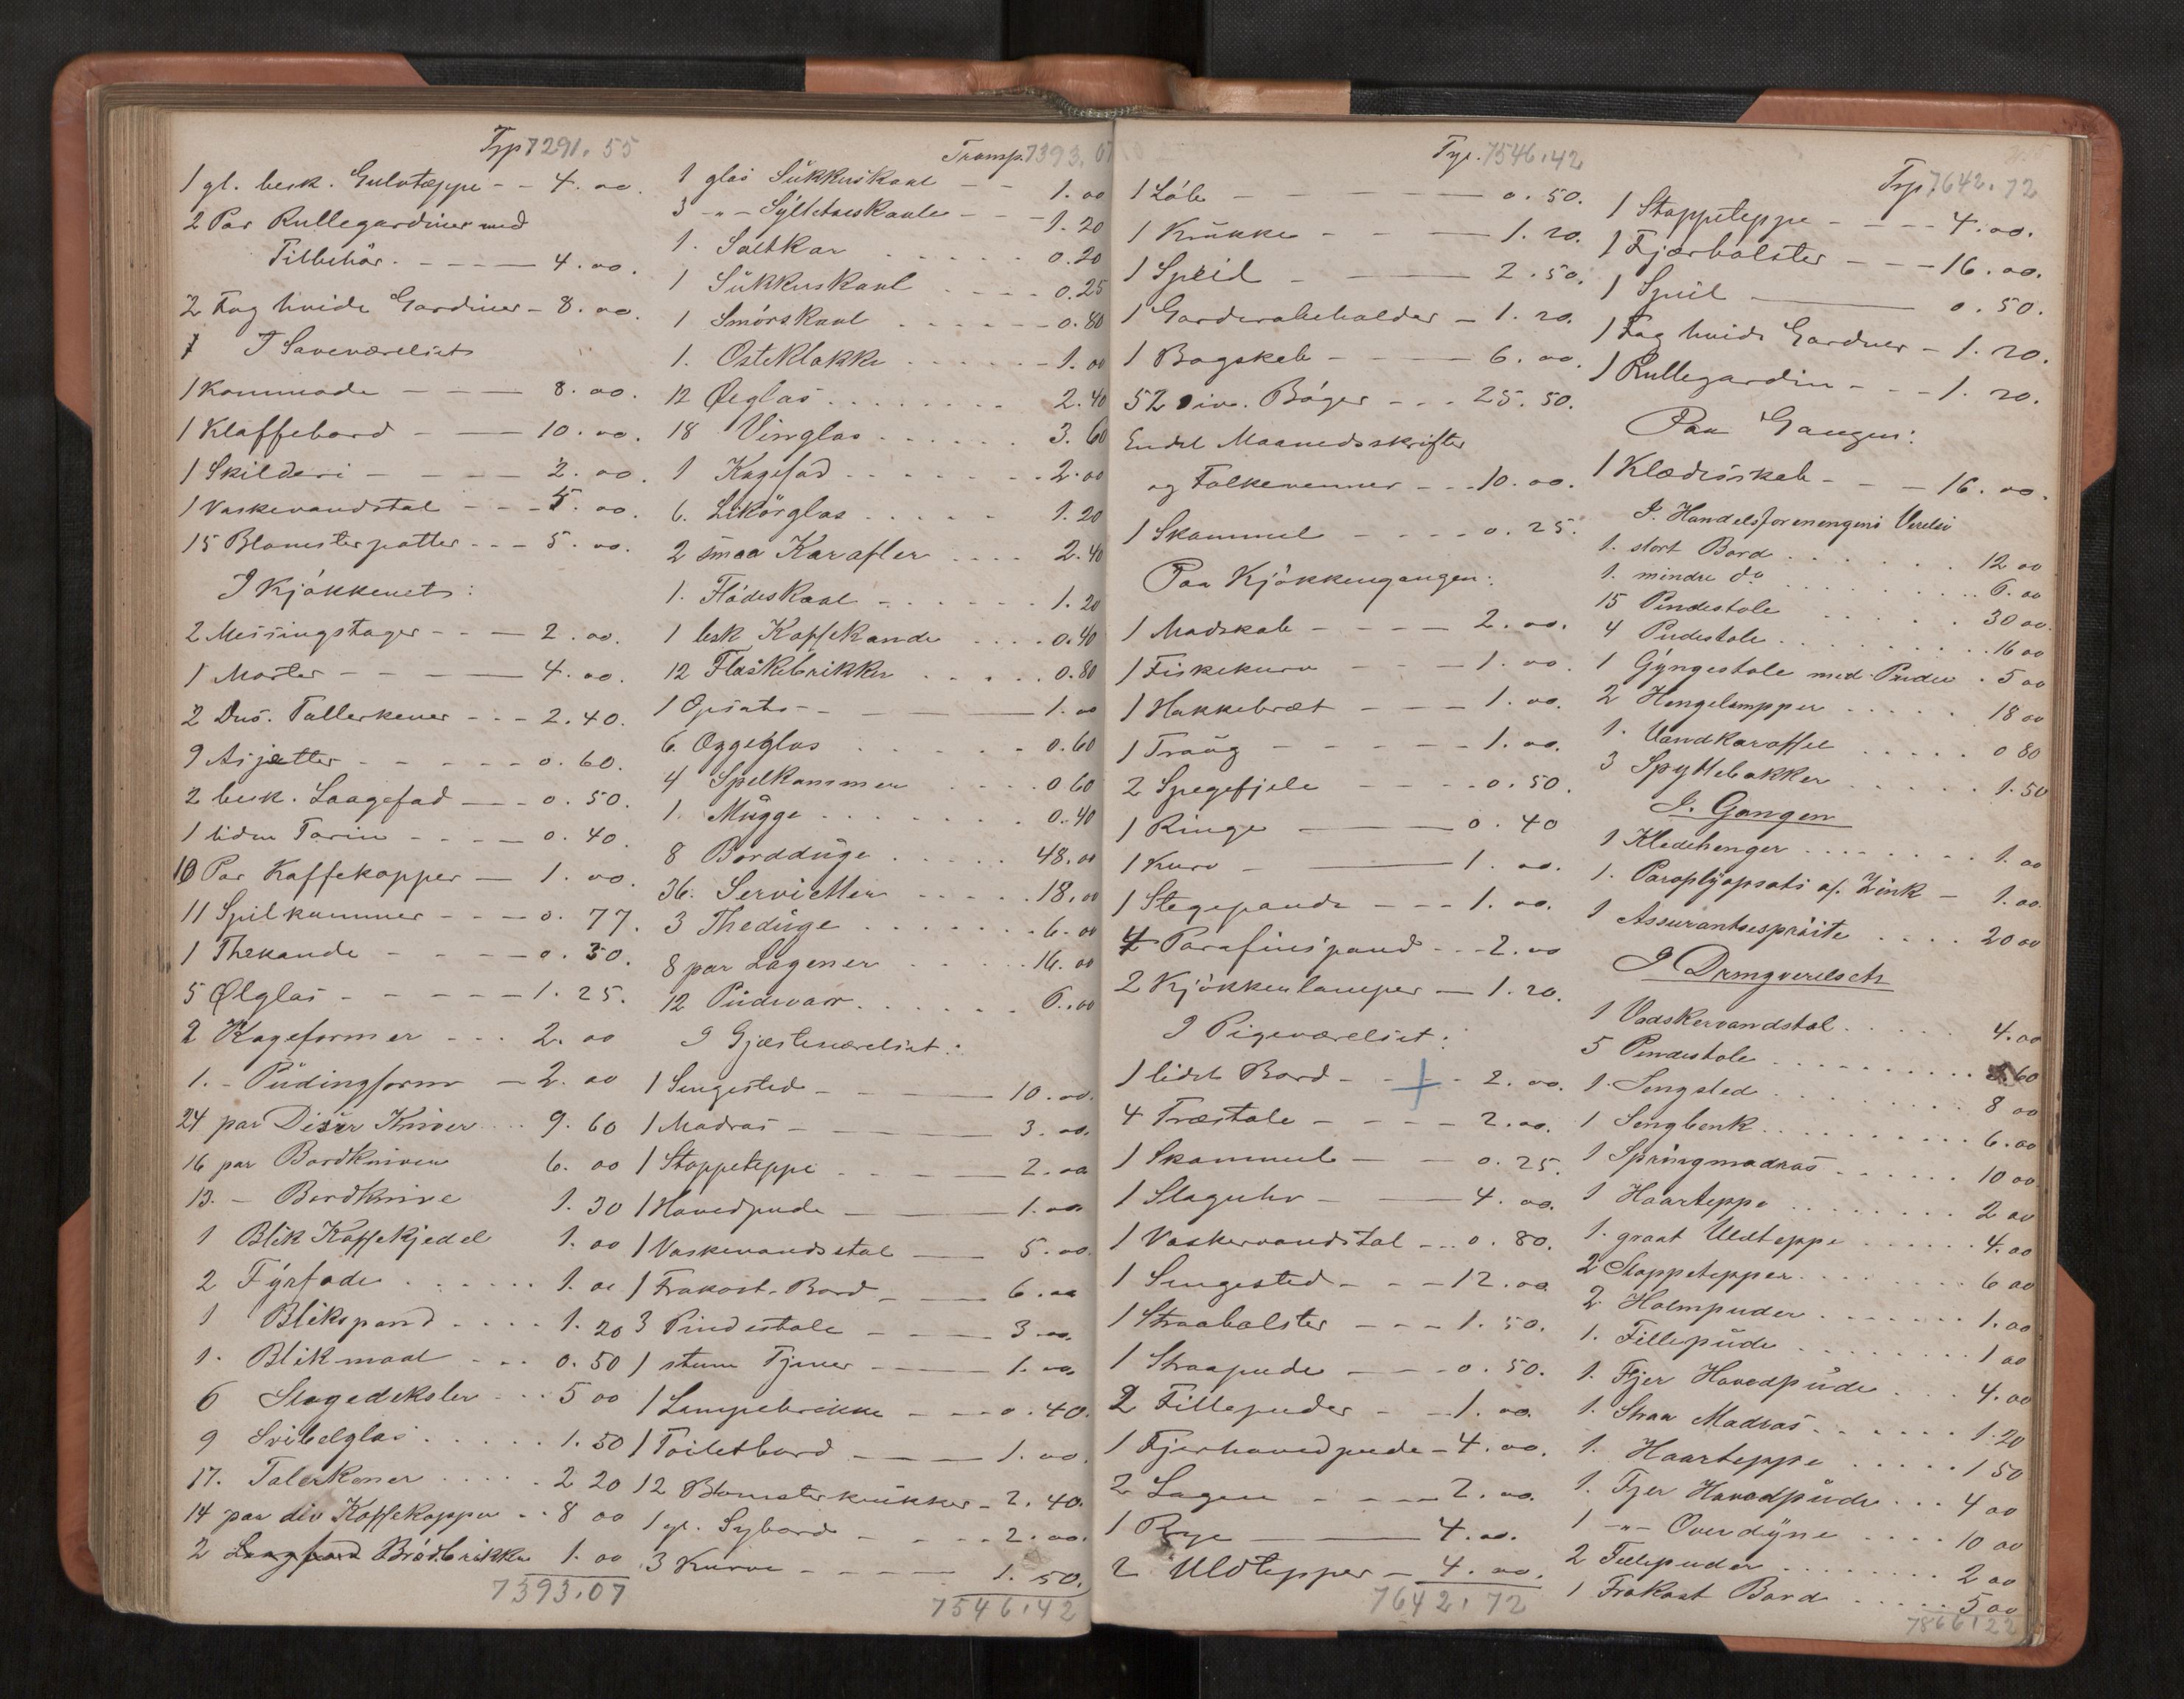 Trp 7291.55
1 gl. besk. Gulvtæppe - - 4.00.
2 Par Rullegardiner med
Tilbehör. - - - 4.00.
2 Fag hvide Gardiner - 8.00.
I Soveværelset
1 Kommode - - - 8.00.
1 Klaffebord - - 10.00.
1 Skilderi - - - 2.00.
1 Vaskevandstol - - - 5.00.
15 Blomsterpotter - - - 5.00.
I Kjøkkenet:
2 Messingstager - - - 2.00.
1 Morter - - - 4.00.
2 Dus. Tallerkener - - - 2.40.
9 Asjetter - - - - 0.60.
2 besk. Laagefad - - - 0.50.
1 liden Tarin - - - - 0.40.
10 Par Kaffekopper - 1.00.
11 Spilkummer - - - 0.77.
1 Thekande - - - - 0.30.
5 Ølglas - - - - - 1.25.
2 Kageformer - - - 2.00
1. - Püdingform - 2.00
24 par Diser Kniver - - 9.60
16 par Bordkniven 6.00
13. - Bordknive 1.30
1 Blik Kaffekjedel 1.00
2 Fyrfade . . . . . . 1.00
1 Blikspand . . . . 1.20
1. Blikmaal . . . 0.50
6 Slagedeksler . . . 5 00
9 Svibelglas . . . . . 1.50
17. Talerkener . . . . . 2 20
14 par div Kaffekopper . . 8 00
2 Brødbrikker 1.00
7393.07
Transp. 7393.07
1 glas Sükkerskaal - - 1.00
3 -"- Syltetøeskaale - - 1.20
1. Saltkar . . . . . . 0.20
1 Sükkerskaal - - - 0.25
1 Smörskaal . . . . - - 0.80
1. Osteklokke . . . . . - 1.00
12 Ølglas . . . . . . . . 2.40
18 Vinglas . . . . . . 3.60
1 Kagefad - - - - - - 2.00
6. Likörglas . . . . . 1.20
2 smaa Karafler . . . . 2.40
1. Flödeskaal - . . . . . . 1.20
1 besk Kaffekande . . . . 0.40
12 Flaskebrikker . . . . . 0.80
1 Opsats - - 1.00
6. Eggeglas . . . . . . 0.60
4 Spelkummer . . . . 0 60
1. Mügge . . . . . . . 0.40
8 Bordduge . . . . . 48.00
36. Servietter . . . . . 18.00
3 Theduge . . . . . . . 6.00
8 par Lagener . . . . . 16.00
12 Püdevaar . . . . . . 6.00
I Gjæsteværelset:
1 Sengested - - 10.00.
1 Madras - - 3.00.
1 Stoppeteppe - - - 2.00
1 Hovedpude - - 1.00
1 Vaskevandsstol - - 5.00
1 Frokost-Bord - - 6.00
3 Pindestole - - - 3.00.
1 stum Tjener - - 1.00.
1 Lampebrikke - - - 0.40.
1 Toiletbord - - 1.00.
12 Blomsterkrükker - 2.40.
1 gl. Sybord - - - - 2.00.
3 Kurve - - - - 1.50.
7546.42
Trp. 7546.42
1 Løb - - - 0.50.
1 Krükke - - - 1.20.
1 Speil - - 2.50.
1 Garderobeholder - 1.20.
1 Bogskab - - - 6.00.
52 Div. Bøger - - - 25.50.
Endel Maanedsskrifter
og Folkevenner - - - 10.00.
1 Skammel - - - - 0.25.
Paa Kjøkkengangen:
1 Madskab - - - - 2.00.
1 Fiskekurv - - - 1.00.
1 Hakkebræt - - - 1.00.
1 Traug - - - - - 1.00.
2 Spegefjele - - - - 0.50.
1 Ringe - - 0.40
1 Kurv - - 1.00.
1 Stegepande - - - 1.00.
4 Parafinspand - - - 2.00
2 Kjøkkenlamper - 1.20.
I Pigeværelset:
1 lidet Bord - - - 2.00.
4 Træstole - - - - 2.00.
1 Skammel - - 0.25.
1 Slaguhr - - 4.00.
1 Vaskevandstol - - 0.80.
1 Sengested - - - 12.00
1 Straabolster - - - 1.50.
1 Straapude - - - 0.50.
2 Fillepuder - - 1.00.
1 Fjerhovedpude - 4.00.
2 Lagen - - - - 2.00.
1 Rye - - 4.00.
2 Uldtepper - 4.00.
7642.72
Trp. 7642.72
1 Stoppeteppe - - - - 4.00.
1 Fjærbolster - - - 16.00.
1 Speil - 0.50.
1 Fag hvide Gardiner - 1.20.
1 Rullegardin - - - 1.20.
Paa Gangen:
1 Klædesskab - - - 16.00.
I. Handelsforenengens Verelse
1. stort Bord . . . . . . 12 00
1. mindre do . . . . . . . . 6.00
15 Pindestole . . . . . . 30 00.
4 Pudestole . . . . . . . . . 16 00
1 Gyngestole med Puder . 5 00
2 Hengelampper . . . . . 18 00
1. Vandkaraffel . . . . . 0 80
3 Spyttebakker . . . . . . 1.50
I. Gangen
1 Kledehenger . . . . . . . . 1.00
1. Paraplyopsats af. Zink - 1.00.
1 Assurantsespröite . . . . 20 00
I Drengverelset
1 Vadskervandstol . . . . . 4.00
5 Pindestole . . . . . . . . . 60
1. Sengsted . . . . . . . . . 8 00
1 Sengbenk . . . . . . . . . . 6.00
1 Springmadras . . . . . . 10 00
1 Haarteppe . . . . . . . . 2 00
1. graat Uldteppe . . . . . . 4.00
2 Stoppetepper . . . . . . . . 6 00
2 Halmpuder . . . . . . . 1.00
1. Fillepüde . . . . . . . . 1 00
1. Fjer Hovedpüde . . . 4.00
1. Straa Madras . . . . . . 1.20
1. Haarteppe . . . . . 1 50
1. Fjer Hovedpüde . . . 4 00
1 -"- Overdyne . . . . 10 00
2 Fillepuder . . . . . . . . 2 00
1 Frokost Bord . . . . . 5 00
7866.22